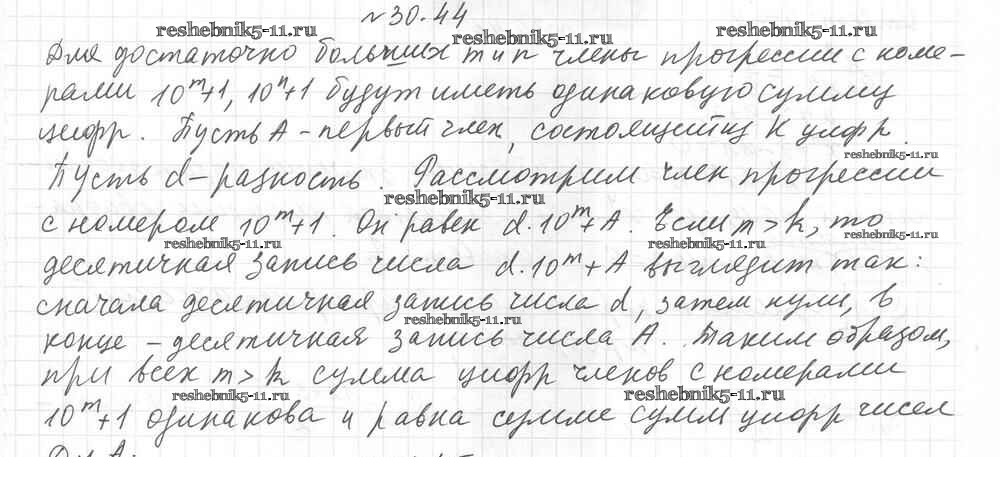 №30.44
Для достаточно больших m и n члены прогрессии с номе-
рами 10^m+1, 10^n+1 будут иметь одинаковую сумму
цифр. Пусть A - первый член, состоящий из K цифр.
Пусть d - разность. Рассмотрим член прогрессии
с номером 10^m+1. Он равен d·10^m+A. Если m>k, то
десятичная запись числа d·10^m+A выглядит так:
сначала десятичная запись числа d, затем нули, в
конце - десятичная запись числа A. Таким образом,
при всех m>k сумма цифр членов с номерами
10^m+1 одинакова и равна сумме сумм цифр чисел
reshebnik5-11.ru
reshebnik5-11.ru
reshebnik5-11.ru
reshebnik5-11.ru
reshebnik5-11.ru
reshebnik5-11.ru
reshebnik5-11.ru
reshebnik5-11.ru
reshebnik5-11.ru
reshebnik5-11.ru
reshebnik5-11.ru